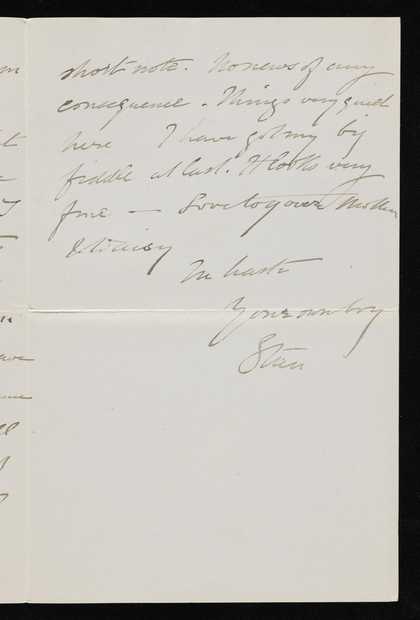 short note. No news of any
consequence. Things very quiet
here I have got my big
fiddle at last. It looks very
fine — Love to your Mother
&
In haste
Your own boy
Stan